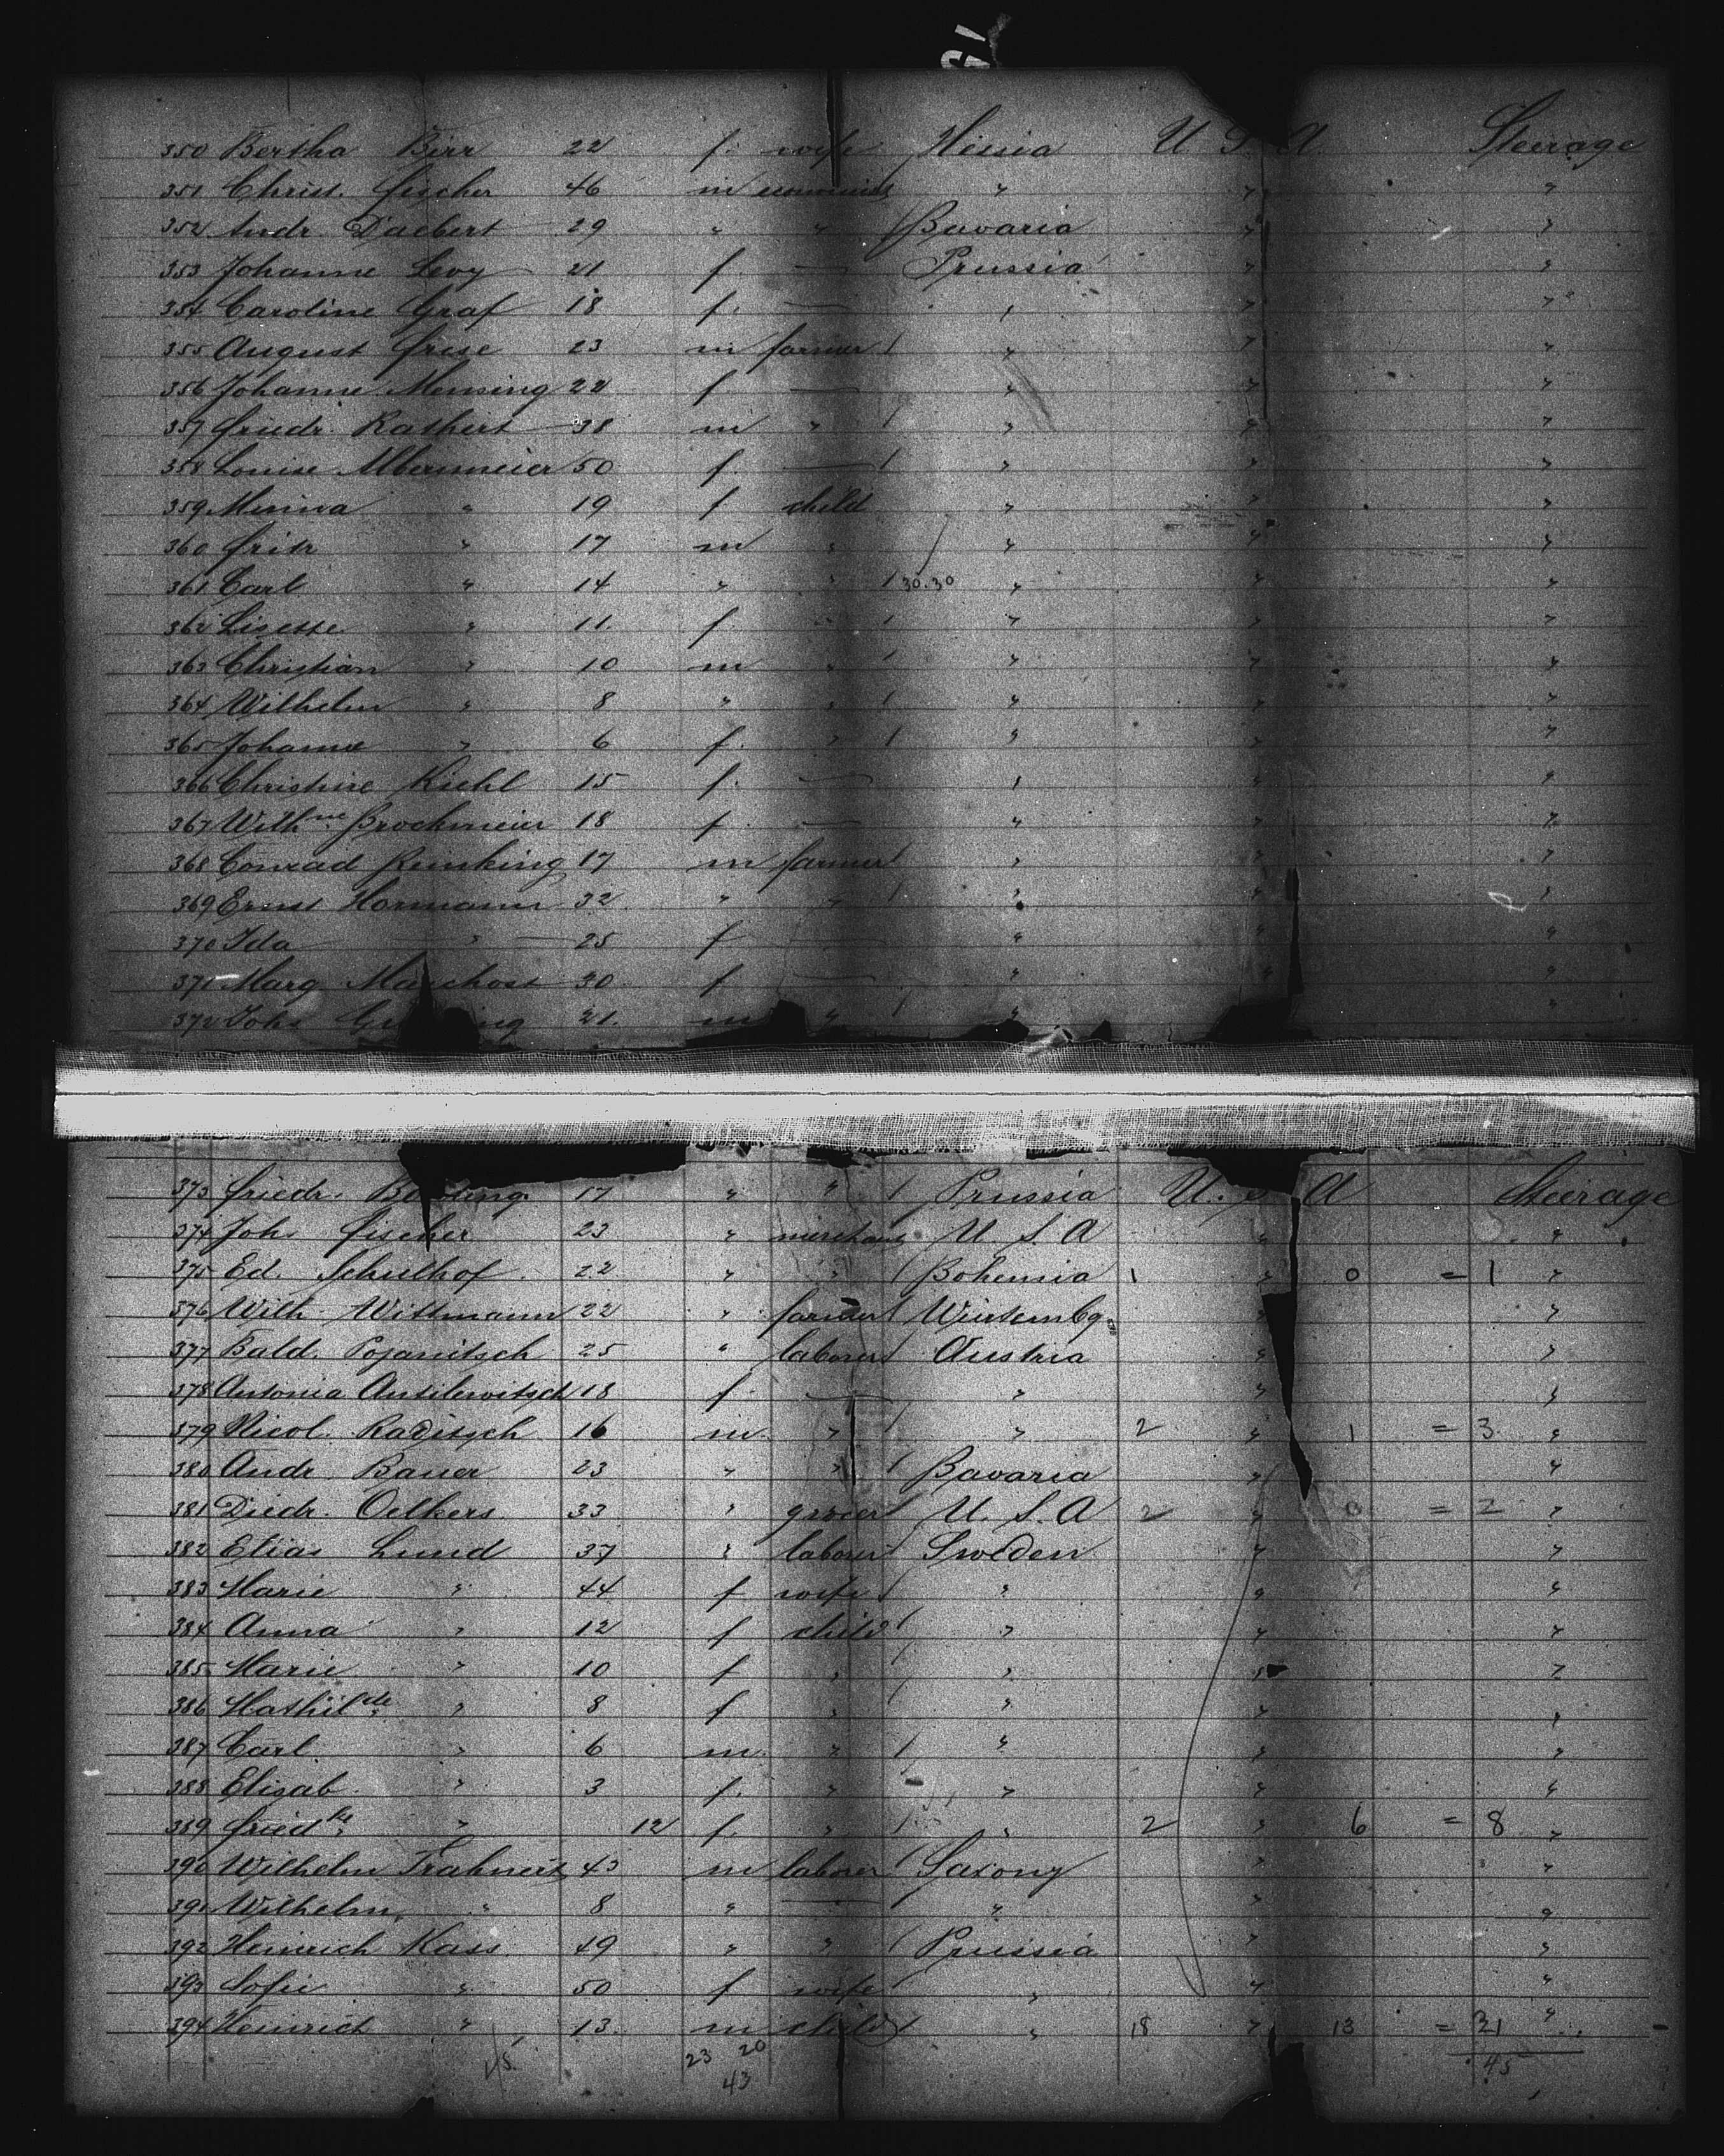 350 Bertha Birr 22 f. wife Hessia U S A. Steerage
351 Christ. Fischer 46 m " "  "
352 Andr. Daebert 29 " " / Bavaria " "
353 Johanne Levy 21 f. — Prussia " "
354 Caroline Graf 18 f. — " " "
355 August Frese 23 m farmer / " " "
356 Johanne Mensing 22 f — " " "
357 Friedr. Rathert 38 m " / " " "
358 Louise Albermeier 50 f. — / " " "
359 Minna " 19 f child " " "
360 Fritz " 17 m " " " "
361 Carl " 14 " " / 30.30 " " "
362 Lisette " 11. f. " / " " "
363 Christian " 10 m " / " " "
364 Wilhelm " 8 " " / " " "
365 Johanne " 6 f. " / " " "
366 Christine Kiehl 15 f. — " " "
367 Wilh.ne Brockmeier 18 f. — " " "
368 Conrad Reinking 17 m farmer / " " "
369 Ernst Hormann 32 " " / " " "
370 Ida " 25 f — " " "
371 Marg. 30 f — " " "
372 Joh. 21. m " / " "
373 Friedr. 17 " " / Prussia U. S A Steerage
374 Joh. Fischer 23 " merchant U. S. A " "
375 Ed. Schulhof 22 " " / Bohemia 1 " 0 = 1 "
376 Wilh. Wittmann 22 " farmer / Würtembg. " "
377 Bald. Pojanitsch 25 " laborer / Austria " "
378 Antonia Antilewitsch 18 f. — " " "
379 Nicol. Raditsch 16 m. " / " 2 " 1 = 3 "
380 Andr. Bauer 23 " " / Bavaria " "
381 Diedr. Oelkers 33 " grocer U. S. A 2 " 0 = 2 "
382 Elias Lund 37 " laborer Sweden " "
383 Marie " 44 f wife / " " "
384 Anna " 12 f child / " " "
385 Marie " 10 f " / " " "
386 Mathilde " 8 f " / " " "
387 Carl. " 6 m. " / " " "
388 Elisab. " 3 f. " " " "
389 Friedke " 12 f. " / " 2 " 6 = 8 "
390 Wilhelm 43 m laborer / Saxony " "
391 Wilhelm " 8 " — " " "
392 Heinrich Kass 49 " " / Prussia " "
393 Sofie " 50 f wife " " "
394 Heinrich " 13. m child / " 18 " 13 = 31 "
45 23 20 45
43